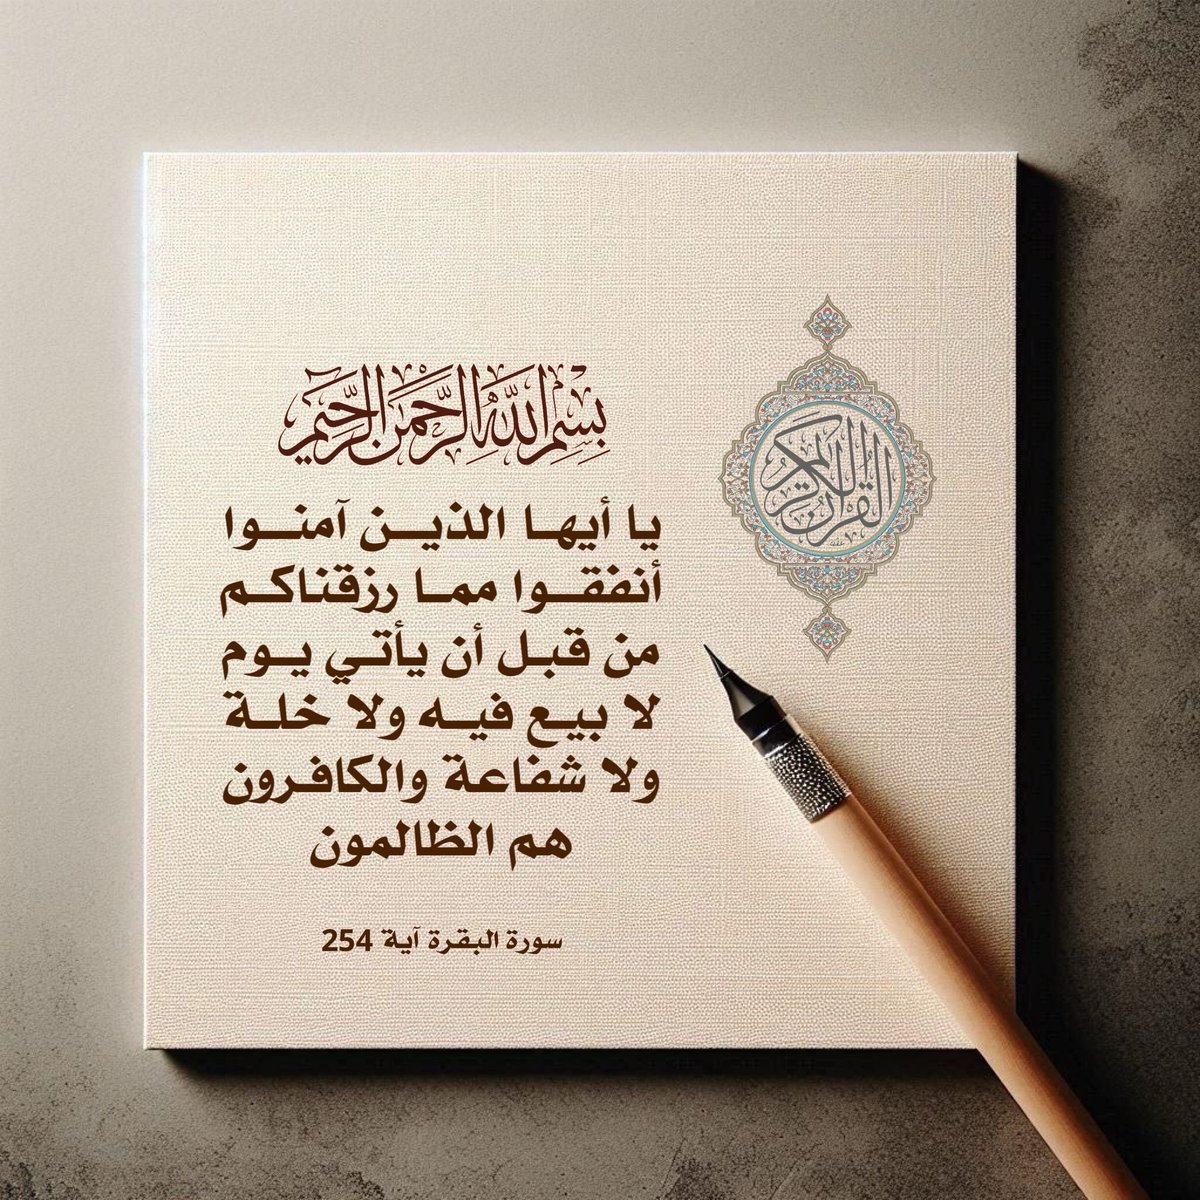 بِسْمِ اللَّهِ الرَّحْمَنِ الرَّحِيمِ
القرآن الكريم
يا أيها الذين آمنوا
أنفقوا مما رزقناكم
من قبل أن يأتي يوم
لا بيع فيه ولا خلة
ولا شفاعة والكافرون
هم الظالمون
سورة البقرة آية 254